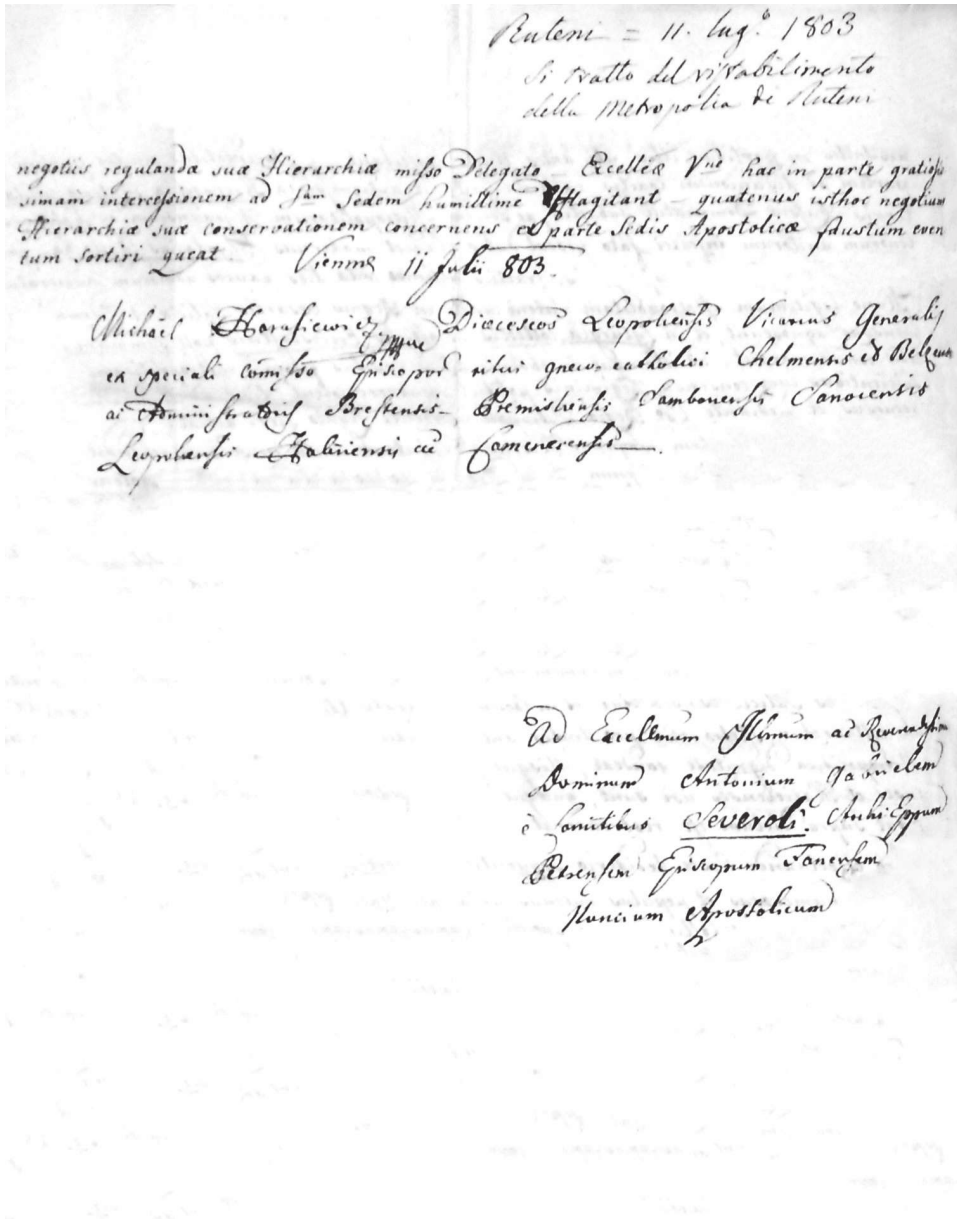 Ruteni = 11. Lugº. 1803
Si tratto del ristabilimento
della Metropolia di Ruteni
negotiis regulandæ suæ Hierarchiæ misso Delegato – Excellæ Vræ hac in parte gratiosis
simam intercessionem ad Sam Sedem humillime efflagitant – quatenus isthoc negotium
Hierarchiæ suæ conservationem concernens ex parte Sedis Apostolicæ faustum even
tum sortiri queat. Viennæ 11 Julii 803.
Michäel Harasiewicz Dioeceseos Leopoliensis Vicarius Generalis
ex speciali comisso Episcopor ritus græco-catholici Chelmensis et Belzensis
ac Administratoris Brestensis – Premisliensis Samboriensis Sanocensis
Leopoliensis Haliciensis ac Camenecensis –.
Ad Excellmum Illmum ac Reverendissimum
Dominum Antonium Gabrielem
e Comitibus Severoli. Archi Eppum
Petrensem Episcopum Fanensem
Nuncium Apostolicum